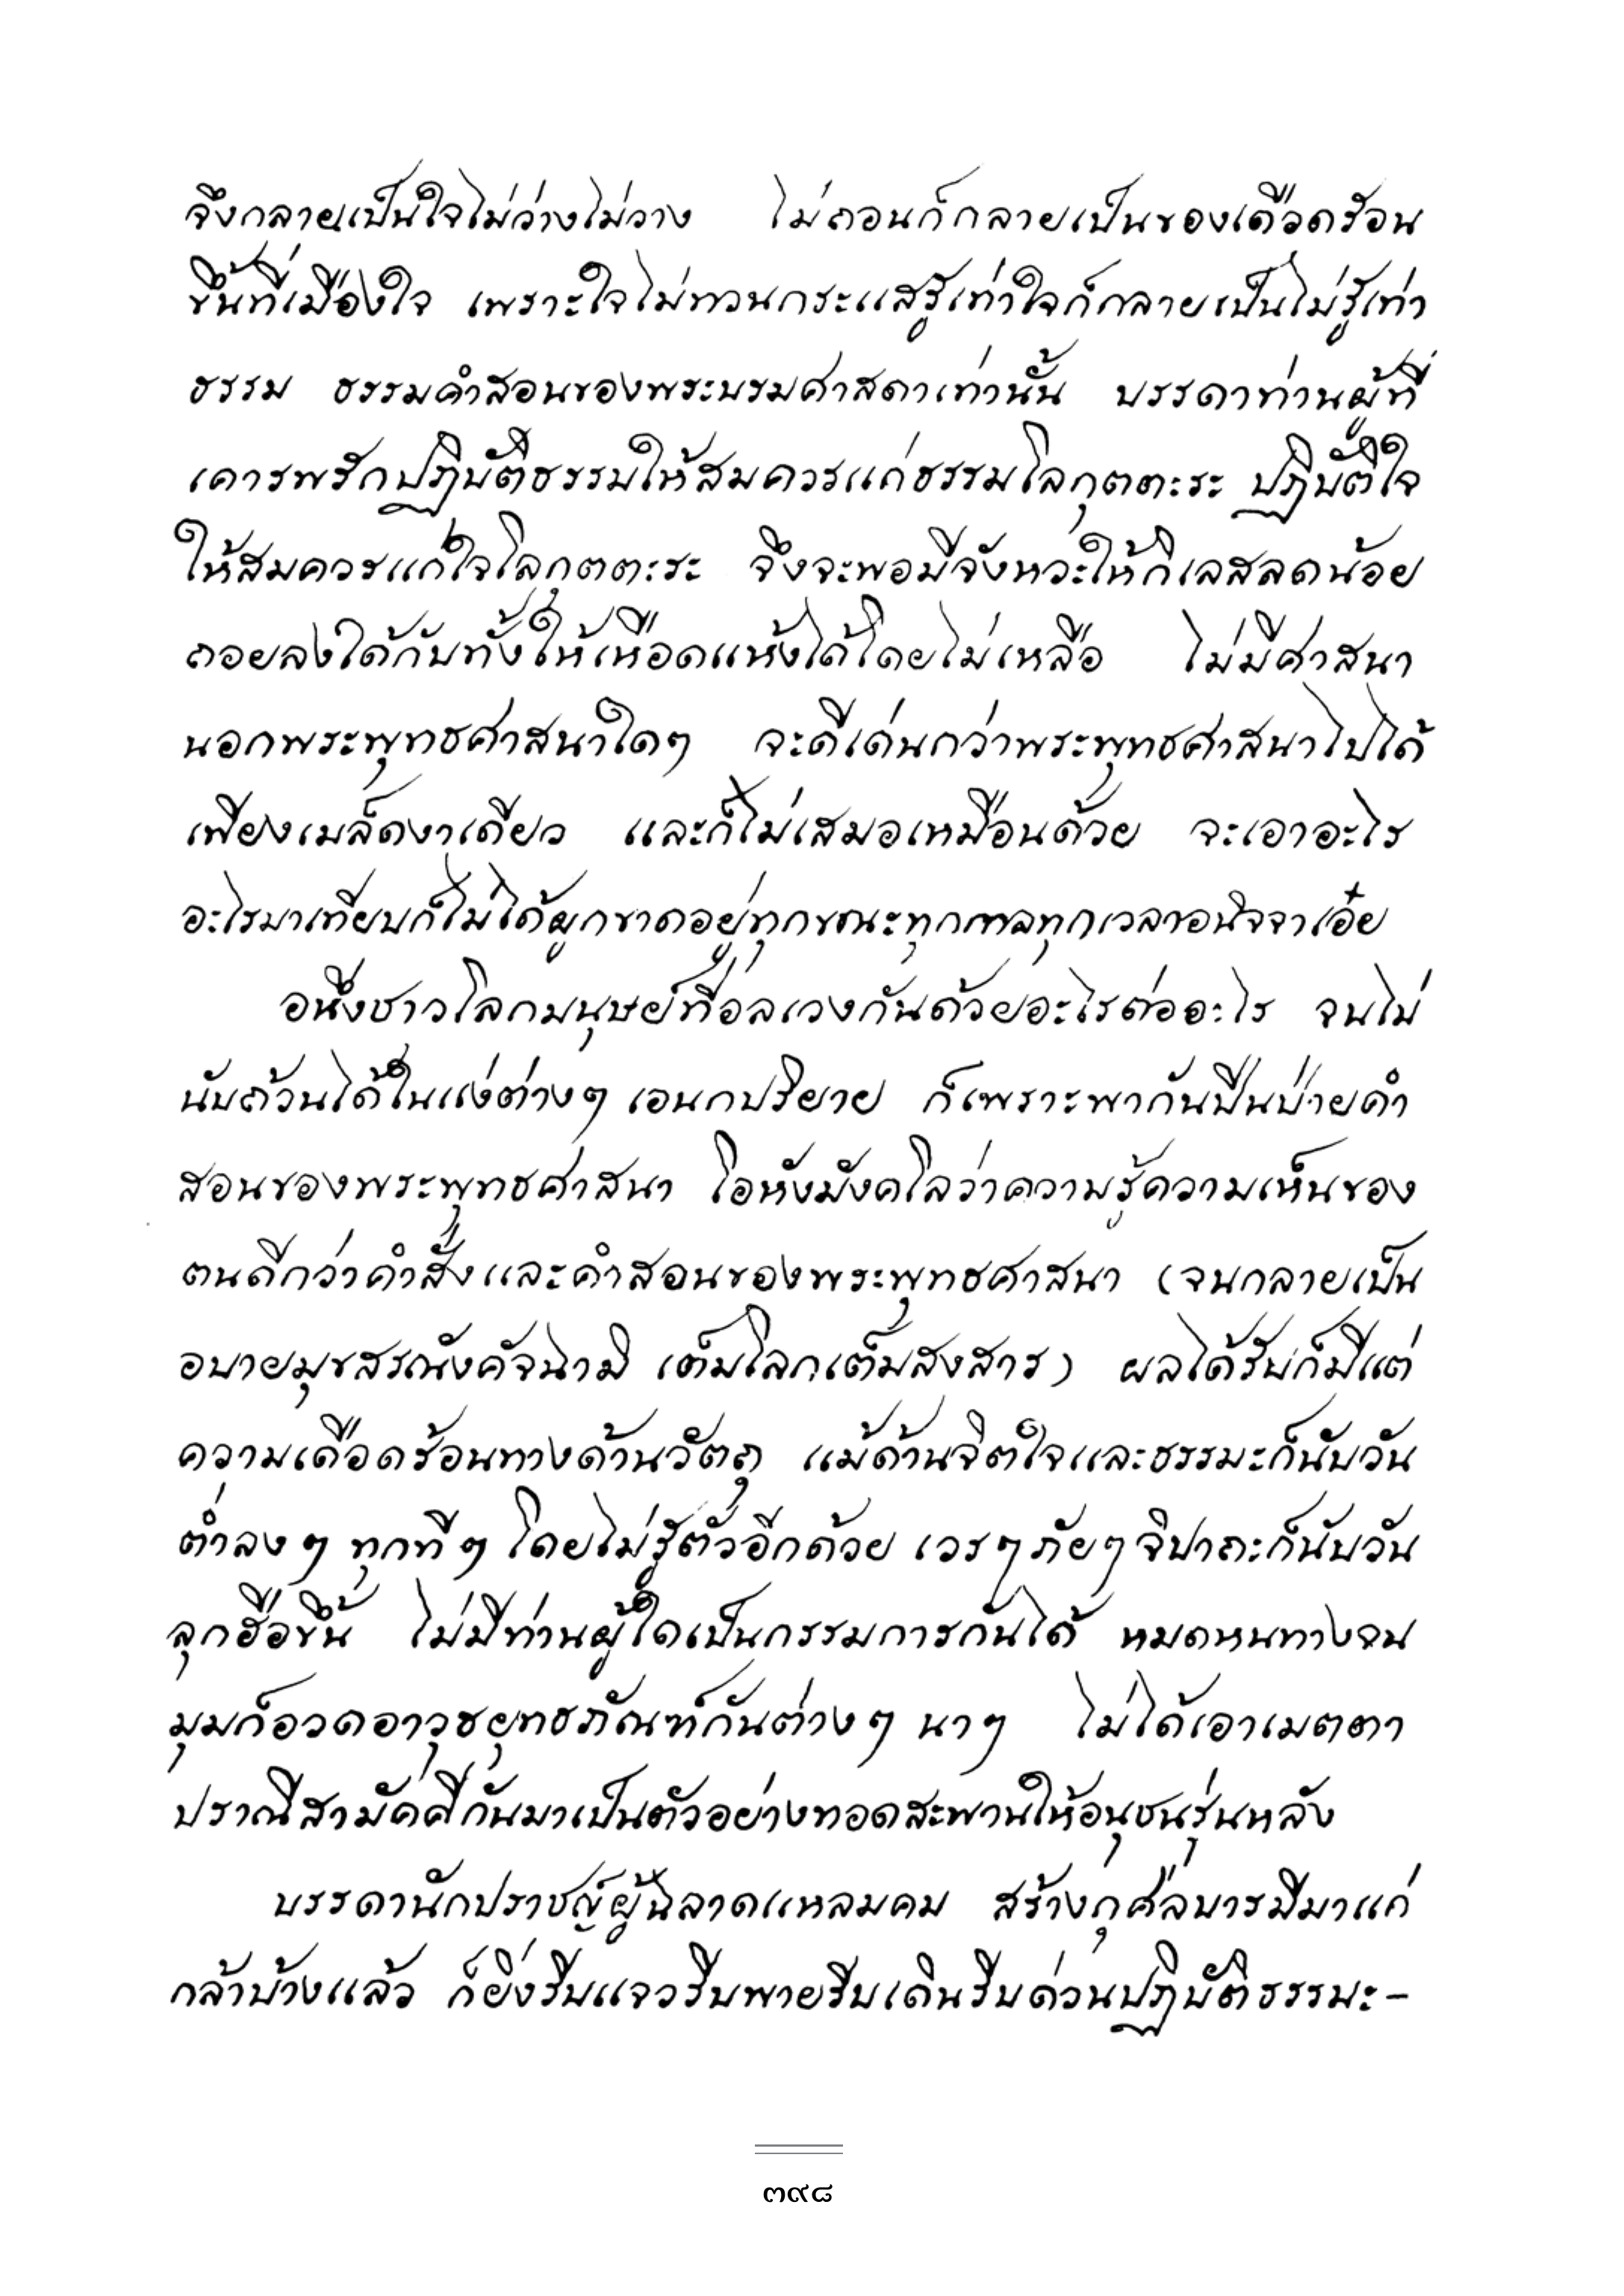 จึงกลายเป็นใจไม่ว่างไม่วาง ไม่ถอนก็กลายเป็นของเดือดร้อน
ขึ้นที่เมืองใจ เพราะใจไม่ทวนกระแสรู้เท่าใจก็กลายเป็นไม่รู้เท่า
ธรรม ธรรมคำสอนของพระบรมศาสดาเท่านั้น บรรดาท่านผู้ที่
เคารพรักปฏิบัติธรรมให้สมควรแก่ธรรมโลกุตตะระ ปฏิบัติใจ
ให้สมควรแก่ใจโลกุตตะระ จึงจะพอมีจังหวะให้กิเลสลดน้อย
ถอยลงได้กับทั้งให้เหือดแห้งได้โดยไม่เหลือ ไม่มีศาสนา
นอกพระพุทธศาสนาใดๆ จะดีเด่นกว่าพระพุทธศาสนาไปได้
เพียงเมล็ดงาเดียว และก็ไม่เสมอเหมือนด้วย จะเอาอะไร
อะไรมาเทียบก็ไม่ได้ผูกขาดอยู่ทุกขณะทุกกาลทุกเวลาอนิจจาเอ๋ย
อนึ่งชาวโลกมนุษย์ที่อลเวงกันด้วยอะไรต่ออะไร จนไม่
นับถ้วนได้ในแง่ต่างๆ เอนกปริยาย ก็เพราะพากันปีนป่ายคำ
สอนของพระพุทธศาสนา โอหังมังคโลว่าความรู้ความเห็นของ
ตนดีกว่าคำสั่งและคำสอนของพระพุทธศาสนา (จนกลายเป็น
อบายมุขสรณังคัจฉามิ เต็มโลกเต็มสงสาร) ผลได้รับก็มีแต่
ความเดือดร้อนทางด้านวัตถุ แม้ด้านจิตใจและธรรมะก็นับวัน
ต่ำลงๆ ทุกทีๆ โดยไม่รู้ตัวอีกด้วย เวรๆภัยๆจิปาถะก็นับวัน
ลุกฮือขึ้น ไม่มีท่านผู้ใดเป็นกรรมการกันได้ หมดหนทางจน
มุมก็อวดอาวุธยุทธภัณฑ์กันต่างๆ นาๆ ไม่ได้เอาเมตตา
ปราณีสามัคคีกันมาเป็นตัวอย่างทอดสะพานให้อนุชนรุ่นหลัง
บรรดานักปราชญ์ผู้ฉลาดแหลมคม สร้างกุศลบารมีมาแก่
กล้าบ้างแล้ว ก็ยิ่งรีบแจวรีบพายรีบเดินรีบด่วนปฏิบัติธรรมะ-
๓๙๘